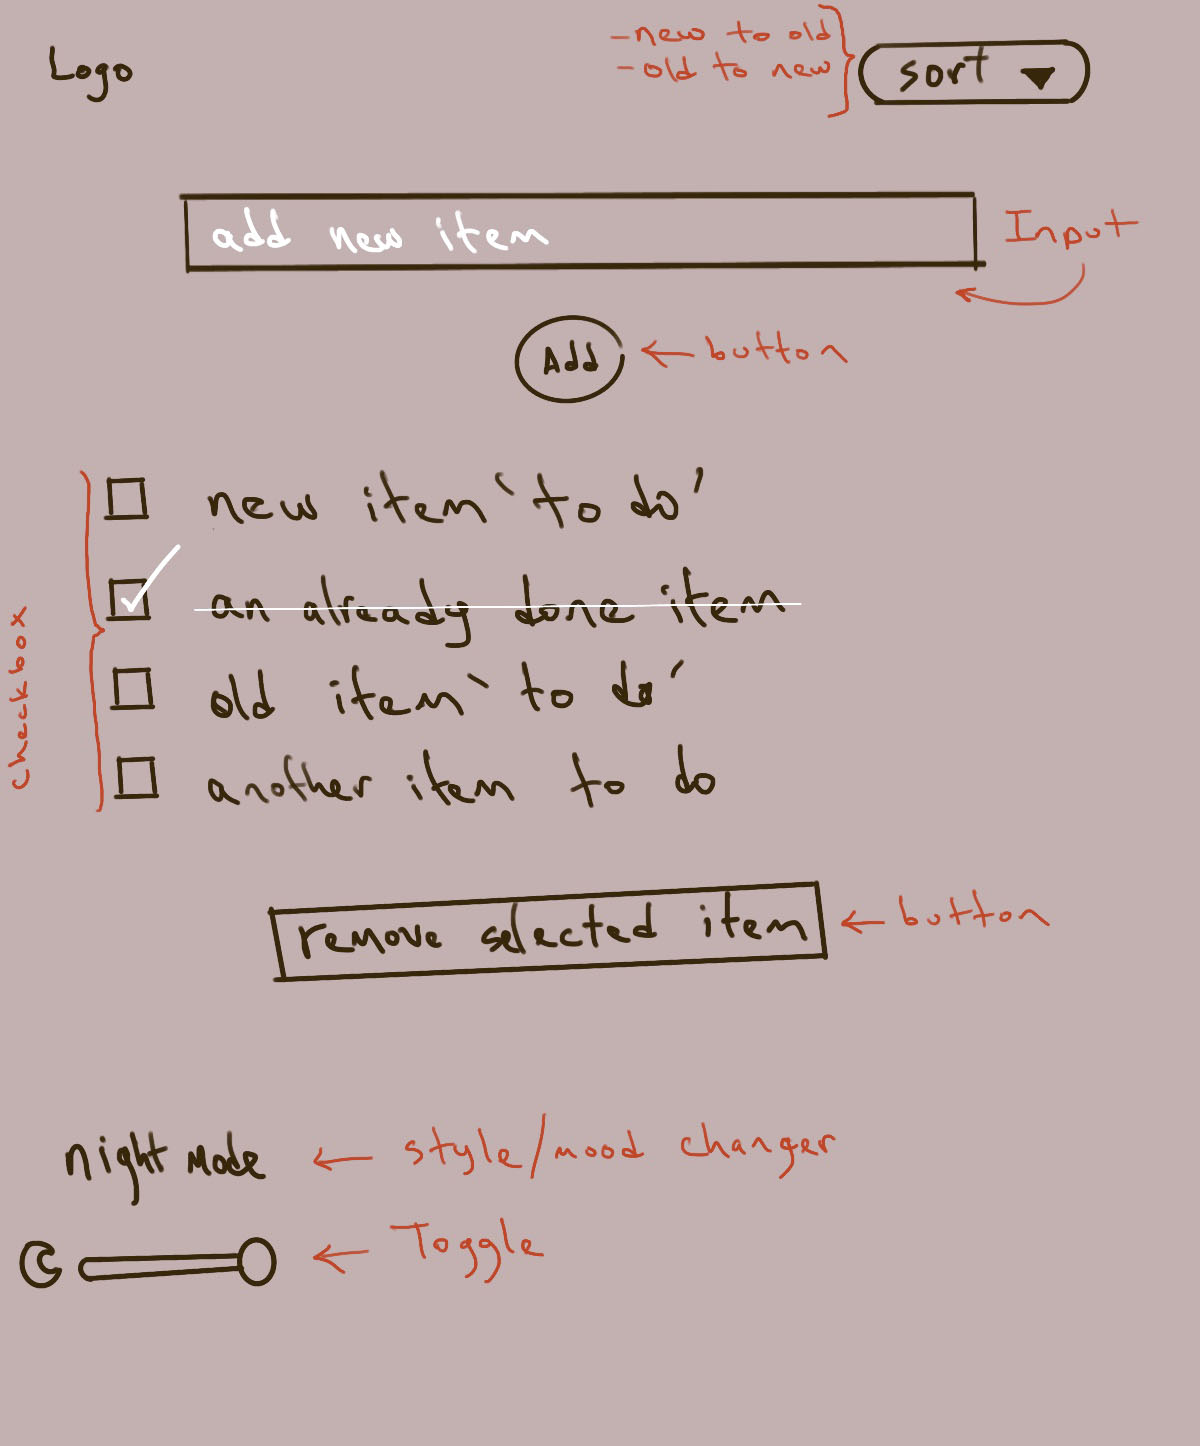 - new to old
- old to new
Logo
sort
add new item
Input
Add
button
checkbox
new item 'to do'
an already done item
old item 'to do'
another item to do
remove selected item
button
night Mode
style/mood changer
Toggle